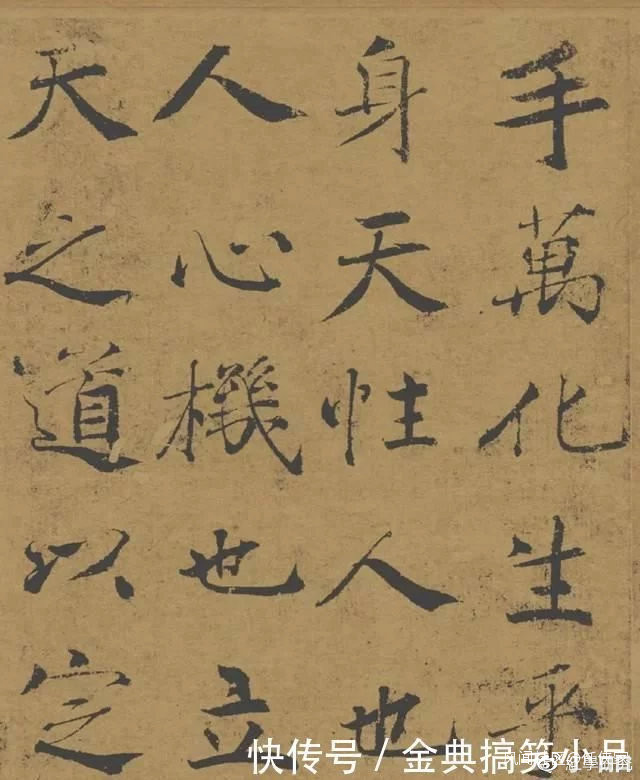 手萬化生乎
身天性人也
人心機也立
天之道以定
快传号／金典搞笑小品